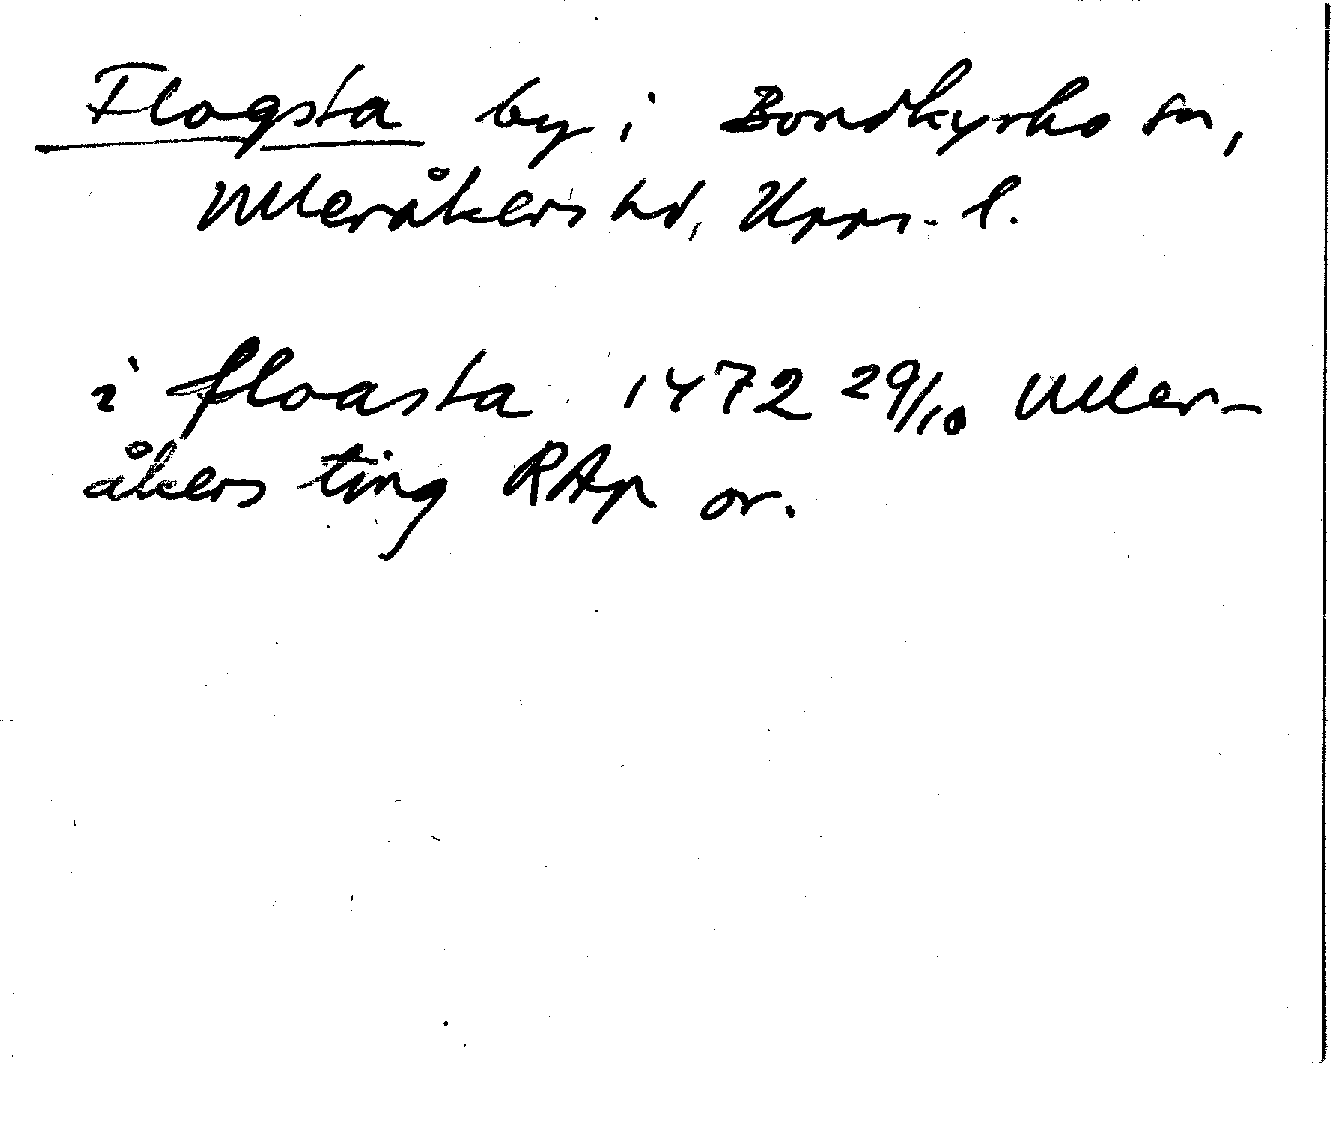 Flogsta by i Bondkyrko sn,
Ulleråkers hd, Upps. l.
i floasta 1472 29/10 Uller-
åkers ting RAp or.